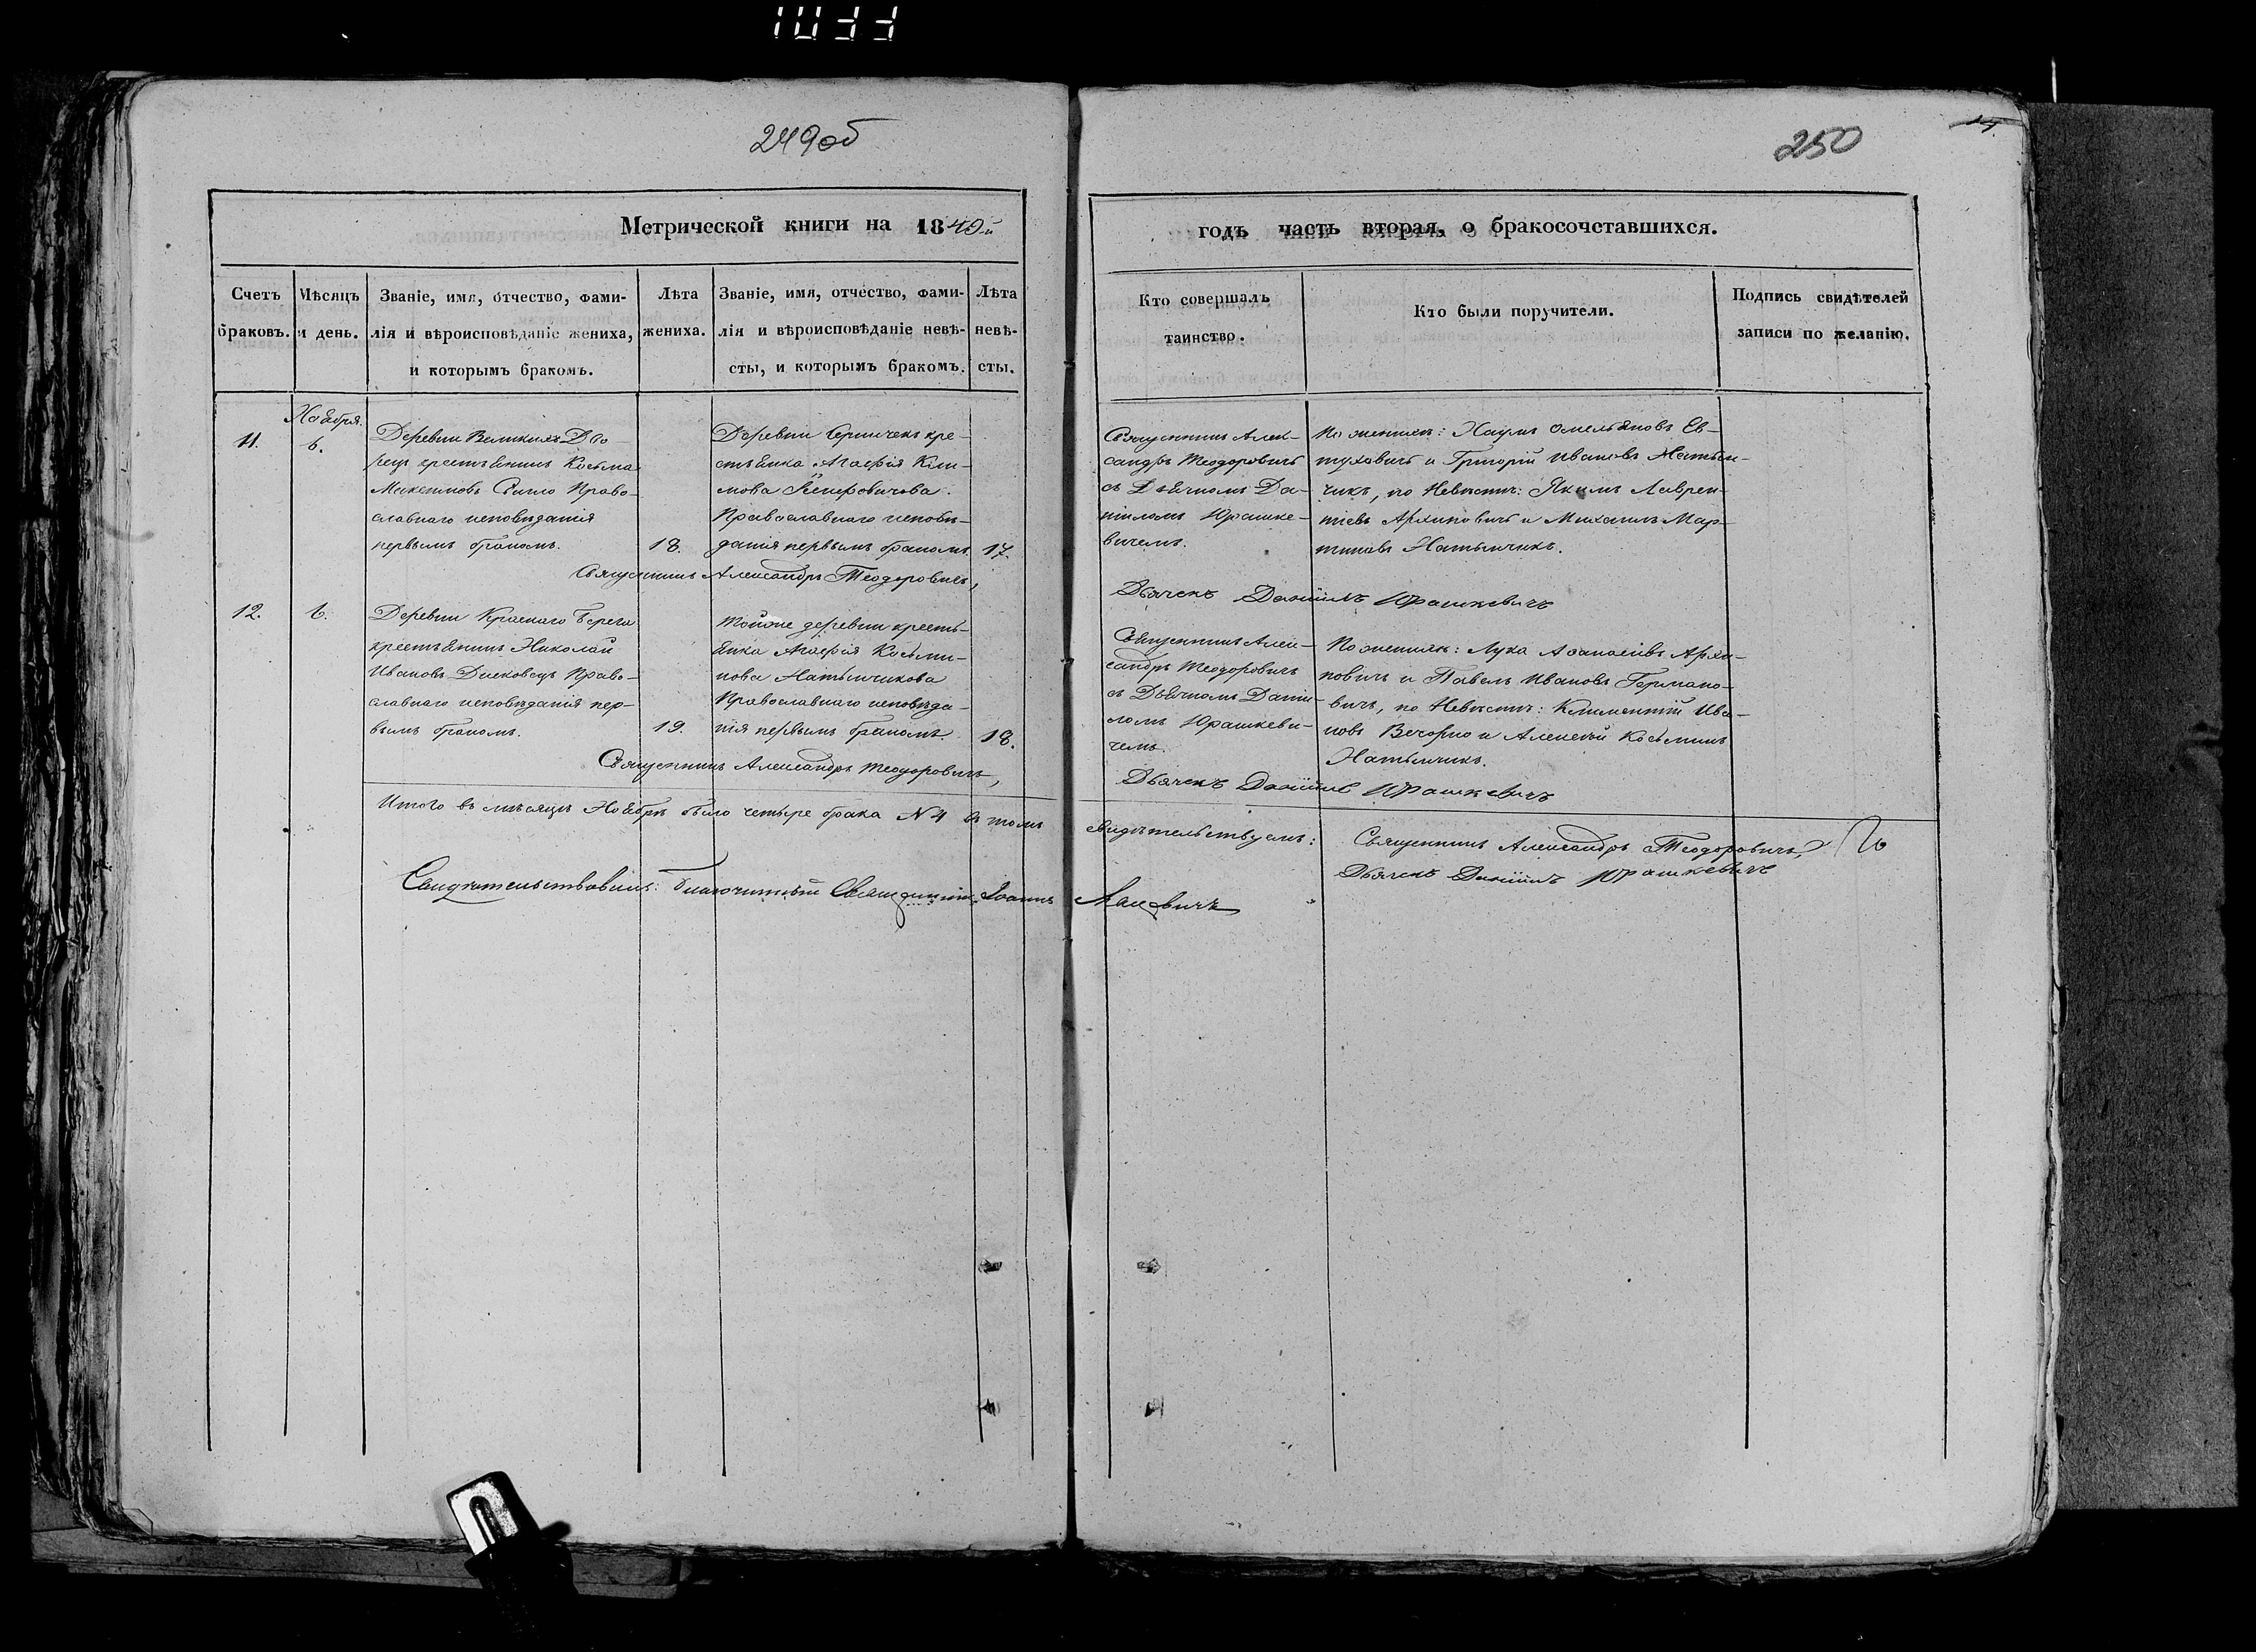 1033
249об
250
Метрической книги на 1849й
годъ часть вторая, о бракосочетавшихся.
Счетъ браковъ.
Мѣсяцъ и день.
Званіе, имя, отчество, фами-
лія и вѣроисповѣданіе жениха,
и которымъ бракомъ.
Лѣта
жениха.
Званіе, имя, отчество, фами-
лія и вѣроисповѣданіе невѣ-
сты, и которымъ бракомъ.
Лѣта
невѣ-
сты.
Кто совершалъ
таинство.
Кто были поручители.
Подпись свидѣтелей
записи по желанію.
Ноября
11.
6.
Деревни Великихъ Дво-
рец крестьянинъ Косьма
Максимовъ Право-
славнаго исповѣданія
первымъ бракомъ.
18.
Деревни кре-
стьянка Агафія Кли-
мова
Православнаго исповѣ-
данія первымъ бракомъ.
17.
Священникъ Александръ Теодоровичъ,
Священникъ Алек-
сандръ Теодоровичъ
съ Дьячкомъ Да-
ніиломъ Юрашке-
вичемъ.
По женихѣ: Наумъ Омельяновъ Ев-
туховичъ и Григорій Ивановъ Натын-
чикъ, по Невѣстѣ: Якимъ Лаврен-
тіевъ Архиповичъ и Михаилъ Мар-
тиновъ Натынчикъ.
Дьячекъ Даніилъ Юрашкевичъ
12.
6.
Деревни Краснаго Берега
крестьянинъ Николай
Ивановъ Право-
славнаго исповѣданія пер-
вымъ бракомъ.
19.
Тойже деревни кресть-
янка Агафія Косьми-
нова Натынчикова
Православнаго исповѣда-
нія первымъ бракомъ
18.
Священникъ Александръ Теодоровичъ,
Священникъ Алек-
сандръ Теодоровичъ
съ Дьячкомъ Дании-
ломъ Юрашкеви-
чемъ.
По женихѣ: Лука Аѳанасіевъ Архи-
повичъ и Павелъ Ивановъ Германо-
вичъ, по Невѣстѣ: Климентій Ива-
новъ Вечорко и Алексѣй Косьминъ
Натынчикъ.
Дьячекъ Даніилъ Юрашкевичъ
Итого въ мѣсяцѣ Ноябрѣ было четыре брака № 4 въ томъ
свидѣтельствуемъ: Священникъ Александръ Теодоровичъ,
Дьячекъ Даніилъ Юрашкевичъ
Свидѣтельствовалъ: Благочинный Священникъ Іоаннъ